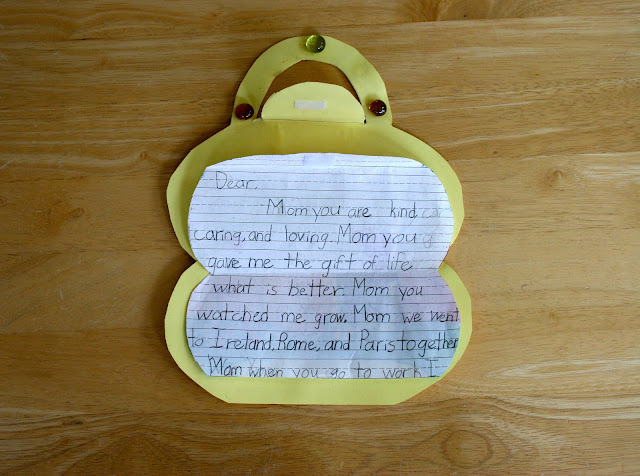 Dear,
Mom you are kind
caring, and loving. Mom you
gave me the gift of life
what is better. Mom you
watched me grow. Mom we went
to Ireland, Rome, and Paris together
Mom when you go to work I